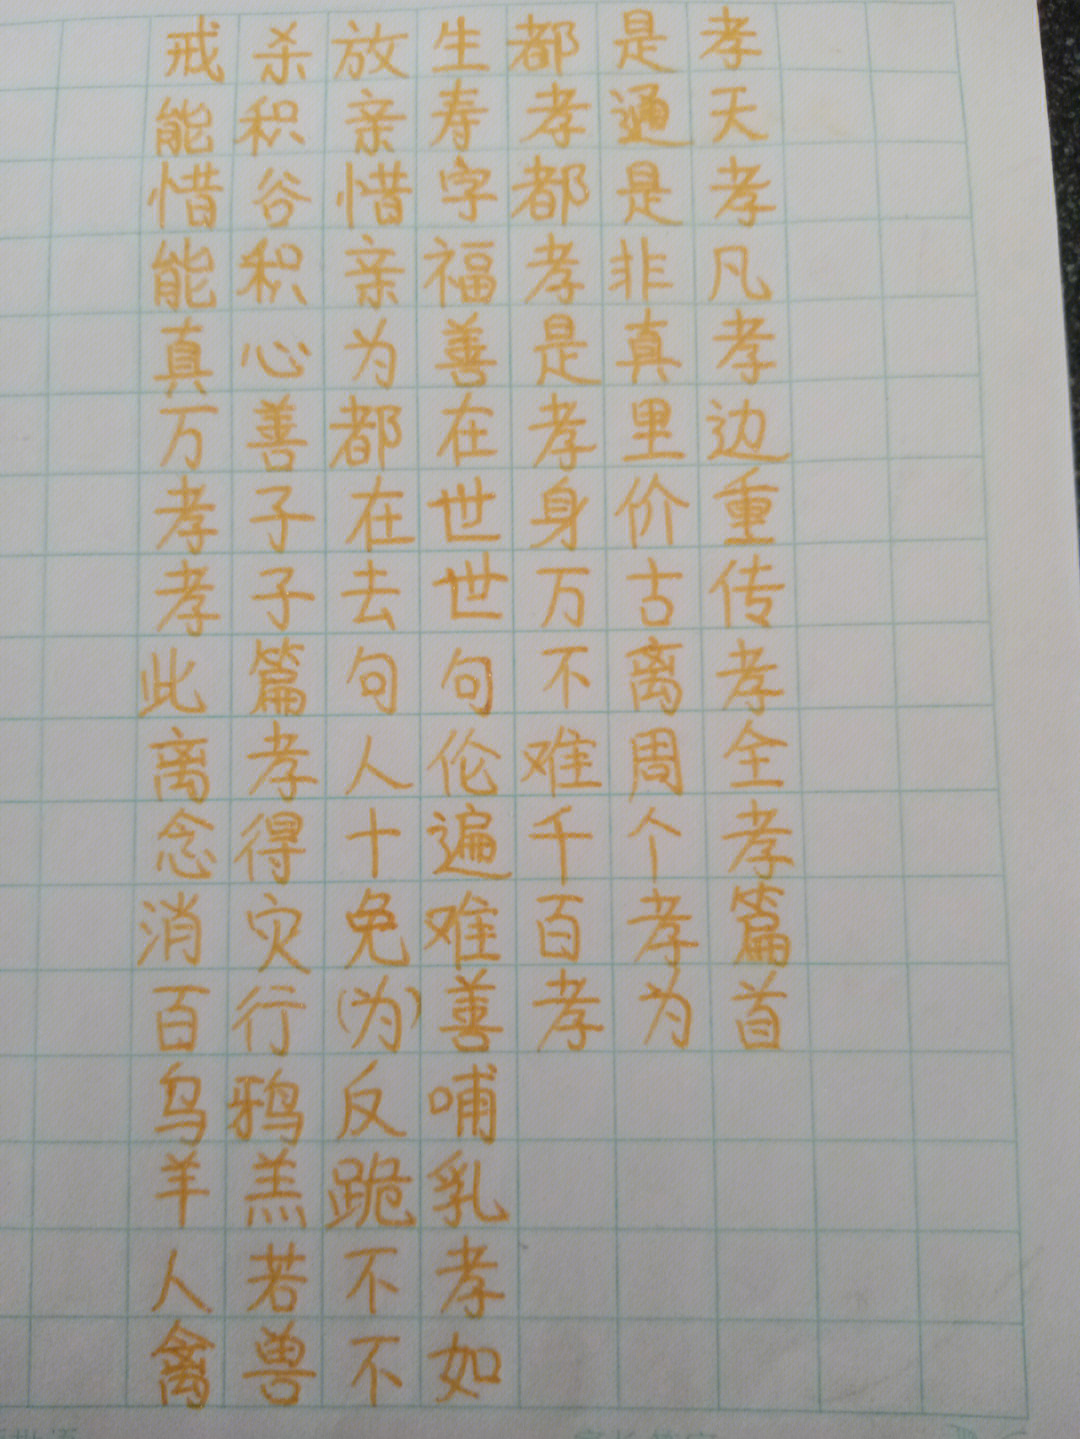 戒杀放生都是孝
能积亲寿孝通天
惜谷惜字都是孝
能积亲福孝非凡
真心为善是真孝
万善都在孝里边
孝子在世身价重
孝子去世万古传
此篇句句不离孝
离孝人伦难周全
念得十遍千个孝
消灾免难百孝篇
百行(为)善孝为首
乌鸦反哺
羊羔跪乳
人若不孝
禽兽不如